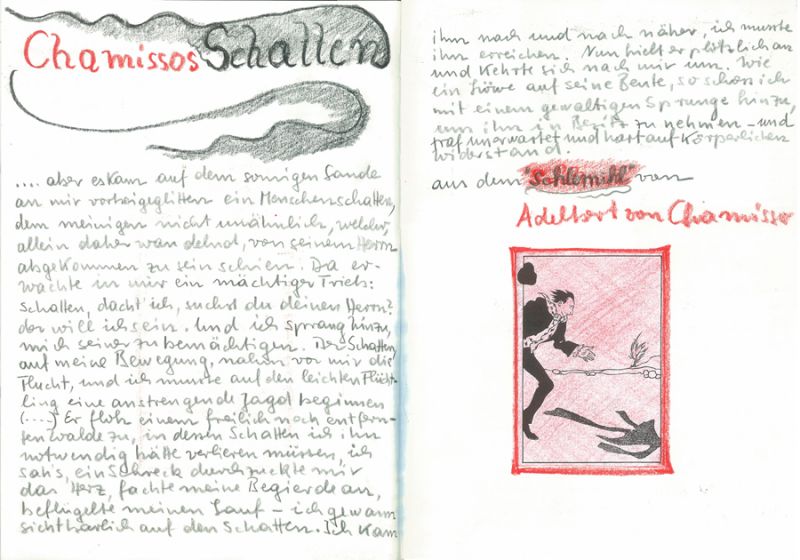 Chamissos Schatten
.... aber es kam auf dem sonnigen Sande
an mir vorbeigeglitten ein Menschenschatten,
dem meinigen nicht unähnlich, welcher,
allein daher wandelnd, von seinem Herrn
abgekommen zu sein schien. Da er-
wachte in mir ein mächtiger Trieb:
Schatten, dacht ich, suchst du deinen Herrn?
der will ich sein. Und ich sprang hinzu,
mich seiner zu bemächtigen. Der Schatten,
auf meine Bewegung, nahm vor mir die
Flucht, und ich musste auf den leichten Flücht-
ling eine anstrengende Jagd beginnen
(....) Er floh einem freilich noch entfern-
ten Walde zu, in dessen Schatten ich ihn
notwendig hätte verlieren müssen, ich
sah's, ein Schreck durchzuckte mir
das Herz, fachte meine Begierde an,
beflügelte meinen Lauf – ich gewann
sichtbarlich auf den Schatten. Ich kam
ihm nach und nach näher, ich musste
ihn erreichen. Nun hielt er plötzlich an
und kehrte sich nach mir um. Wie
ein Löwe auf seine Beute, so schoss ich
mit einem gewaltigen Sprunge hinzu,
um ihn in Besitz zu nehmen – und
traf unerwartet und hart auf körperlichen
Widerstand.
aus dem "Schlemihl" von
Adelbert von Chamisso